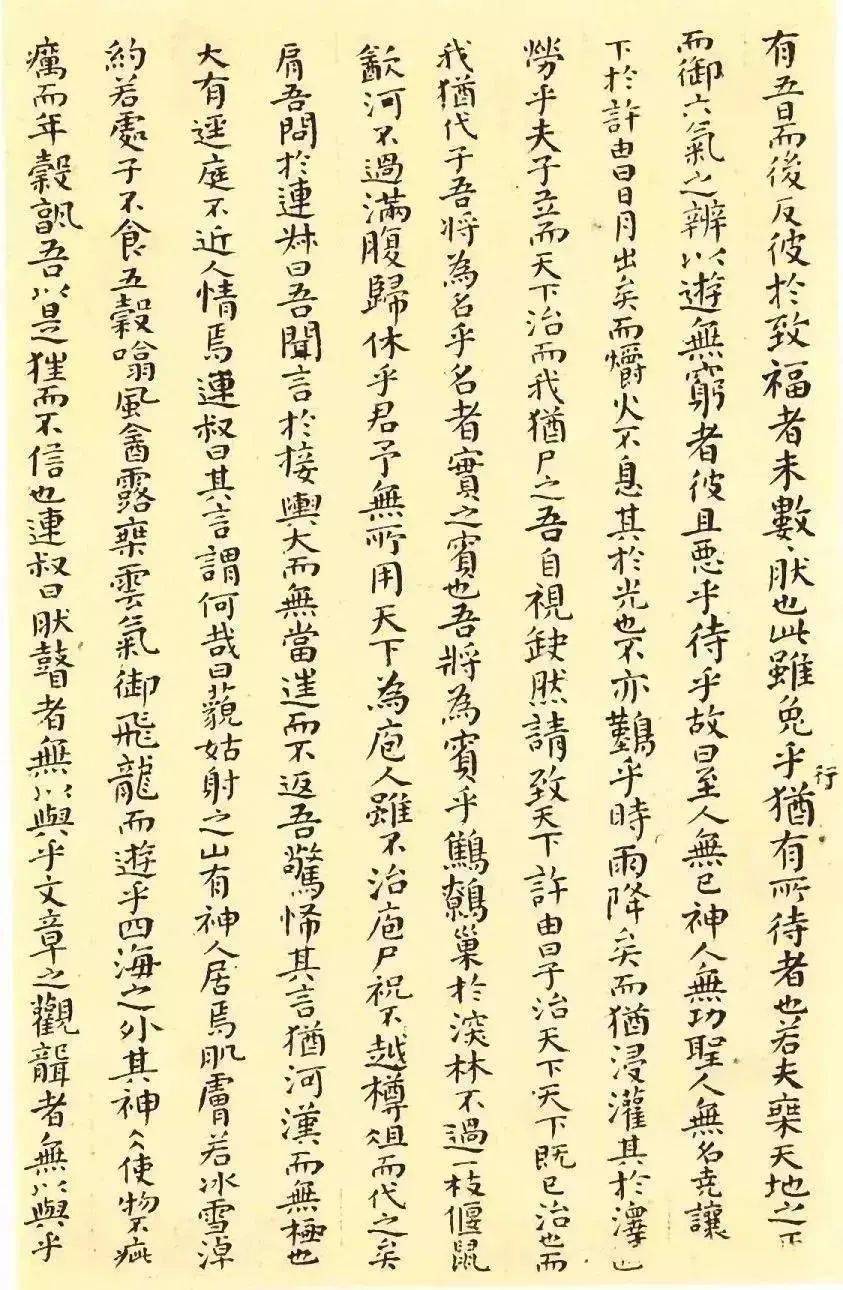 有五日而後反彼於致福者未數〻然也此雖免乎行猶有所待者也若夫乗天地之正
而御六氣之辨以遊無窮者彼且惡乎待乎故曰至人無已神人無功聖人無名堯讓
下於許由曰日月出矣而爝火不息其於光也不亦難乎時雨降矣而猶浸灌其於澤也
勞乎夫子立而天下治而我猶尸之吾自視缺然請致天下許由曰子治天下天下既已治也而
我猶代子吾將為名乎名者實之賓也吾將為賓乎鷦鷯巢於深林不過一枝偃鼠
飲河不過滿腹歸休乎君予無所用天下為庖人雖不治庖尸祝不越樽俎而代之矣
肩吾問於連叔曰吾聞言於接輿大而無當往而不返吾驚怖其言猶河漢而無極也
大有逕庭不近人情焉連叔曰其言謂何哉曰藐姑射之山有神人居焉肌膚若冰雪淖
約若處子不食五穀噏風飲露乗雲氣御飛龍而遊乎四海之外其神〻使物不疵
癘而年穀熟吾以是狂而不信也連叔曰然瞽者無以與乎文章之觀聾者無以與乎